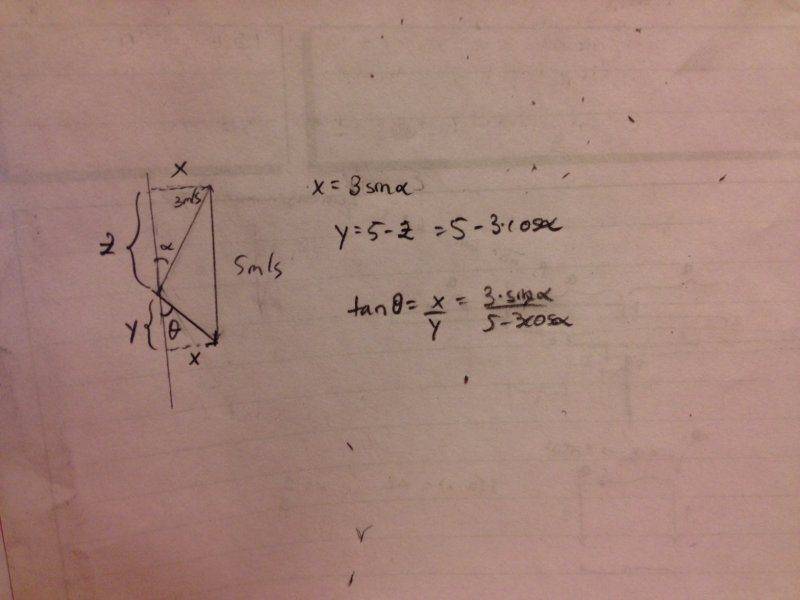 x
3m/s
z
α
5m/s
y
θ
x
x = 3 sinα
y = 5 - z = 5 - 3·cosα
tanθ = x/y = 3·sinα / 5-3cosα